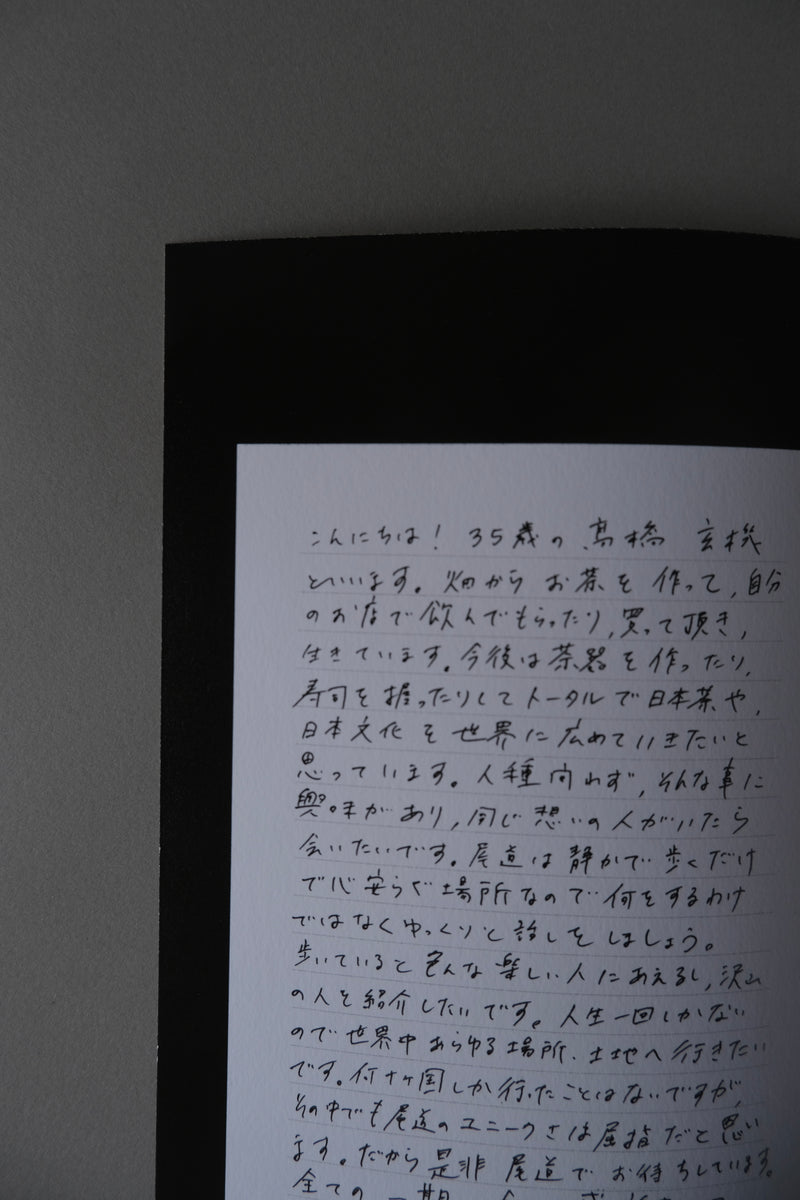 こんにちは! 35歳の 高橋 玄機
といいます。畑から お茶を 作って,自分
のお店で飲んでもらったり,買って頂き,
生きています。今後は茶器を作ったり,
寿司を握ったりしてトータルで日本茶や,
日本文化を世界に広めていきたいと
思っています。人種問わず,そんな事に
興味があり,同じ想いの人がいたら
会いたいです。尾道は静かで歩くだけ
で心安らぐ場所なので何をするわけ
ではなくゆっくりと話しをしましょう。
歩いていると色んな楽しい人にあえるし,沢山
の人を紹介したいです。人生一回しかない
ので世界中あらゆる場所、土地へ行きたい
です。何十ヶ国しか行ったことはないですが,
その中でも尾道のユニークさは屈指だと思い
ます。だから是非 尾道で お待ちしています。
全ての 一期